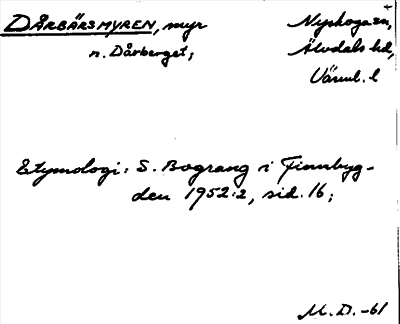 DÅRBÄRSMYREN, myr
n. Dårberget;
Nyskoga sn,
Älvdals hd,
Värml. l
Etymologi: S. Bograng i Finnbyg-
den 1952:2, sid. 16;
M.D. -61